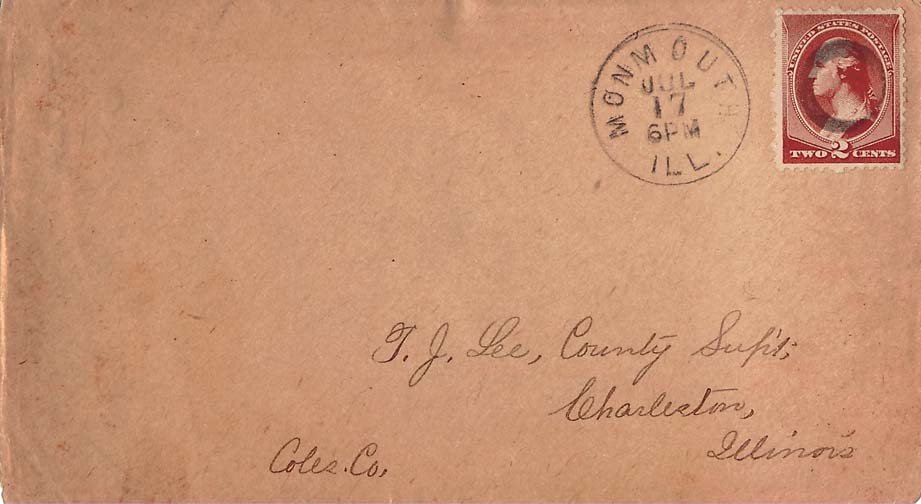 MONMOUTH
JUL
17
6PM
ILL.
UNITED STATES POSTAGE
TWO 2 CENTS
T. J. Lee, County Supt;
Charleston,
Illinois
Coles. Co,